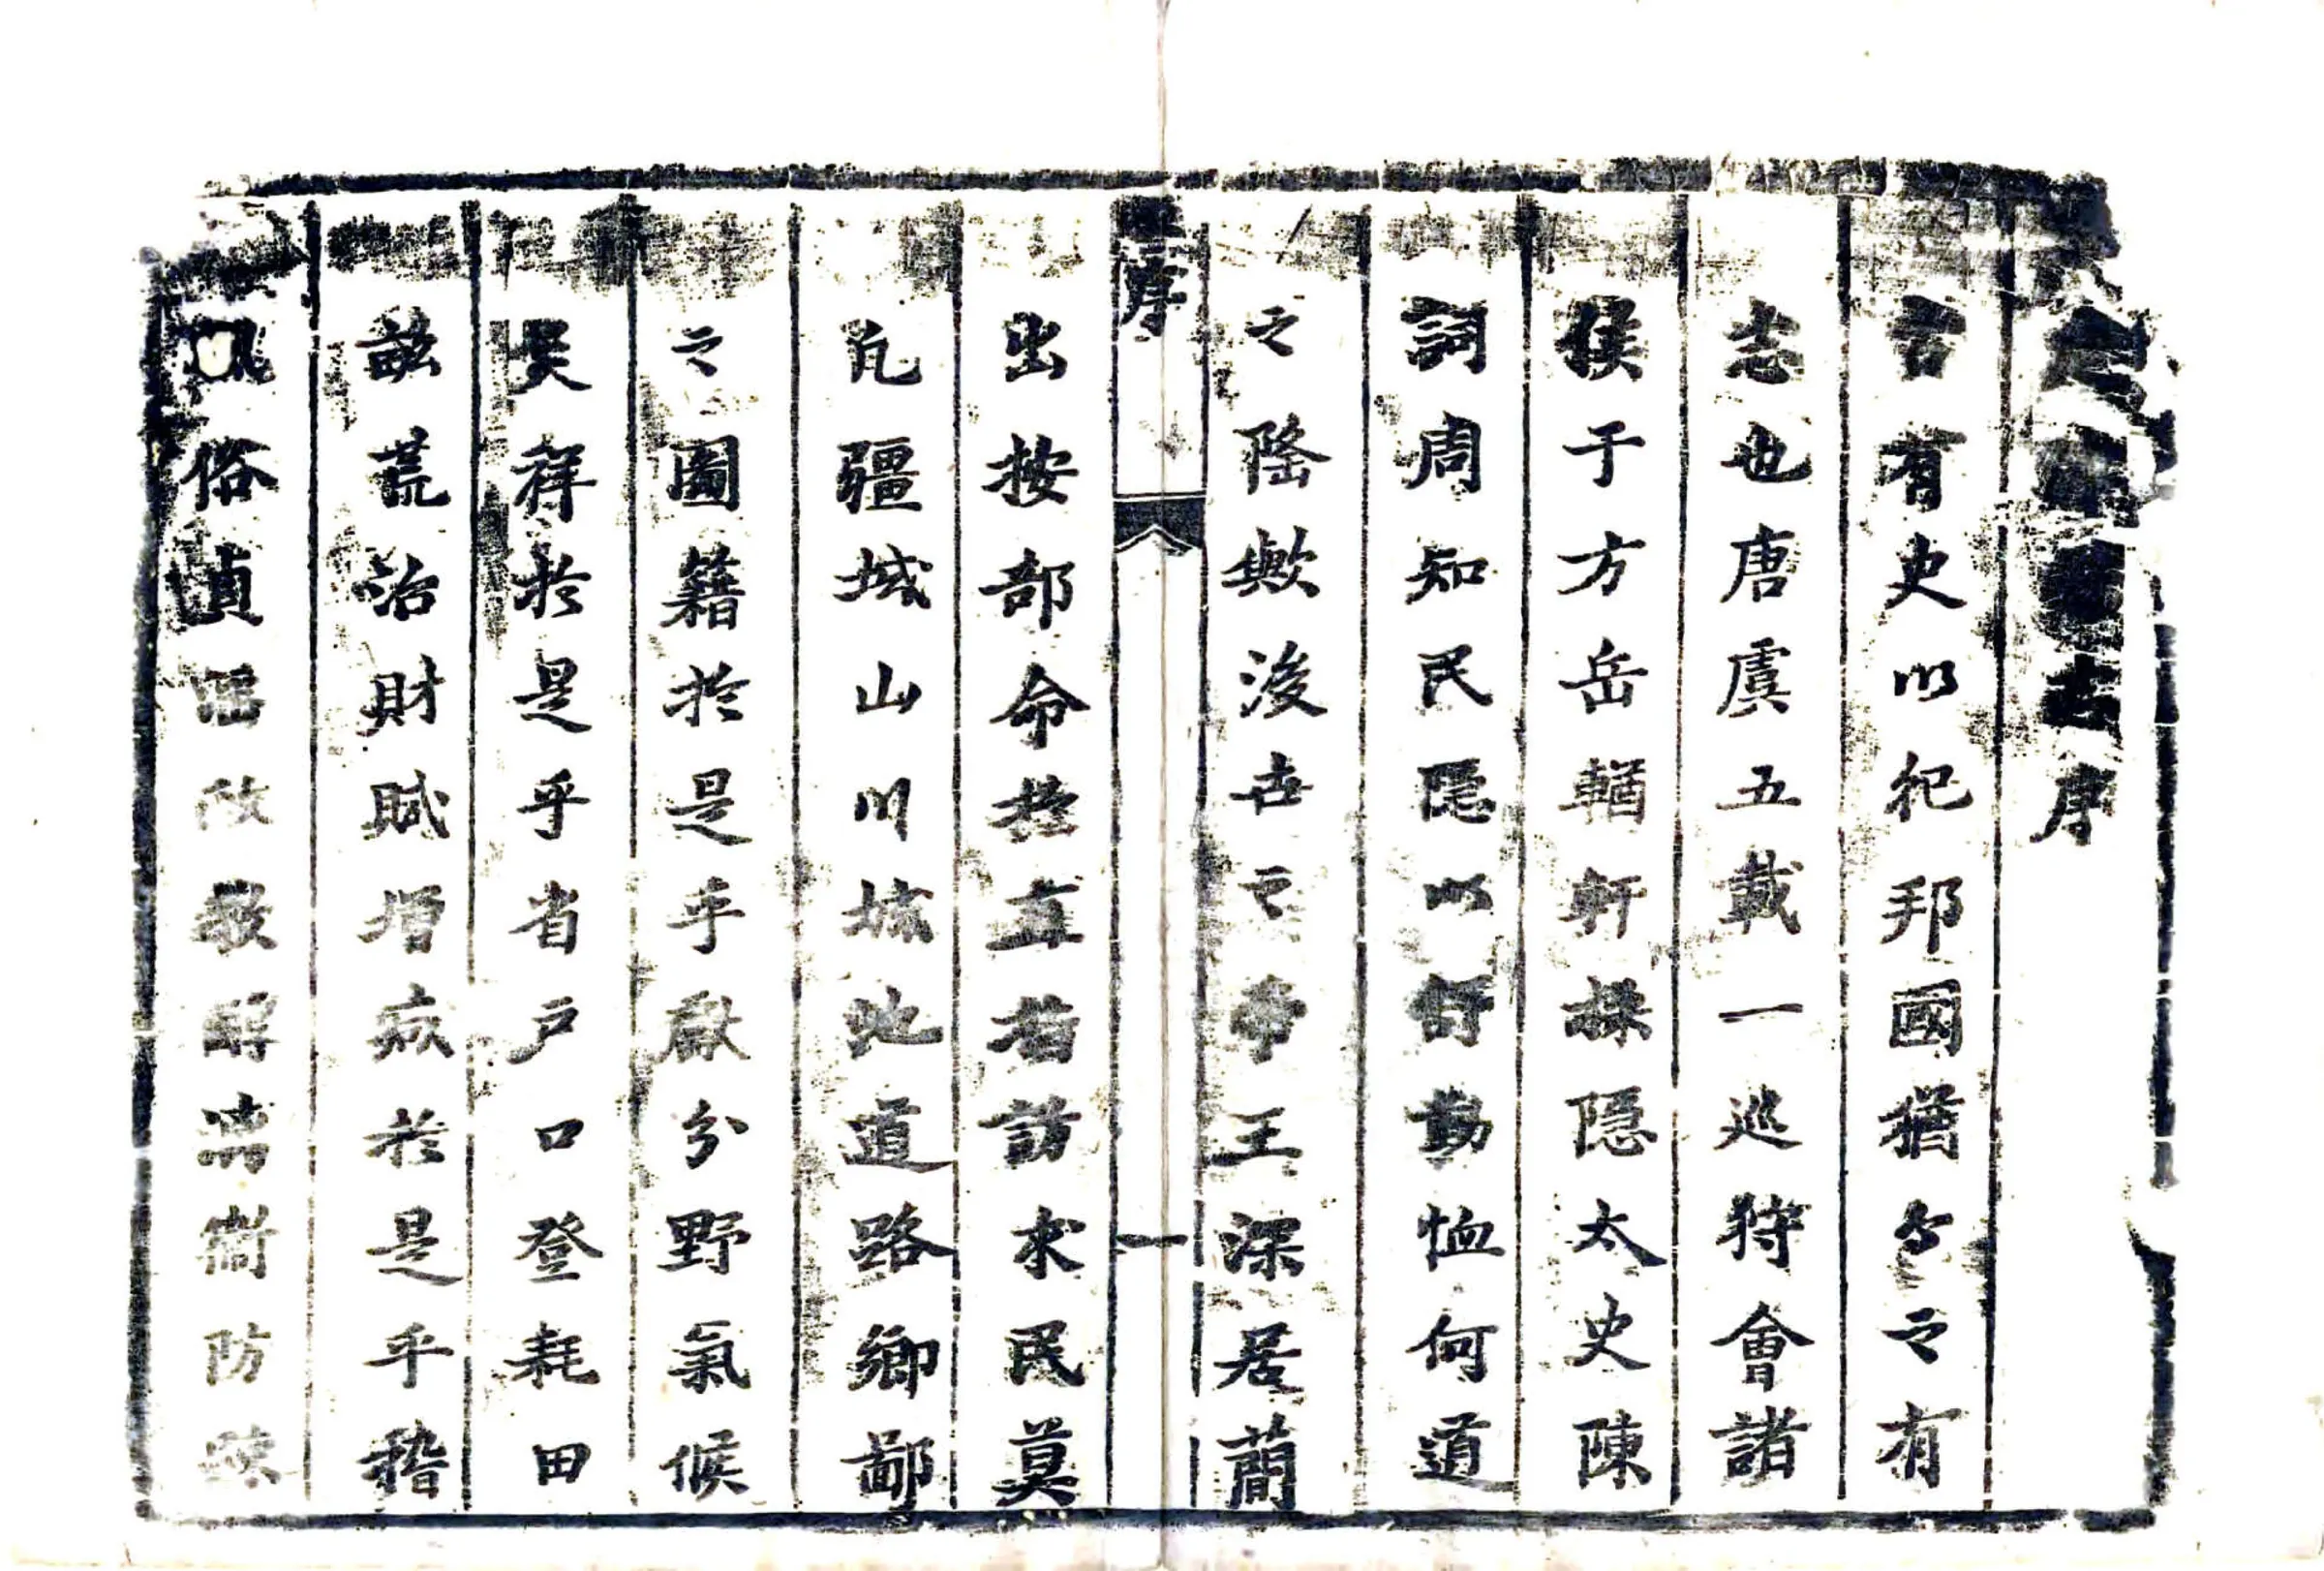 志序
古有史以紀邦國猶今之有
志也唐虞五載一巡狩會諸
侯于方岳輶軒採隱太史陳
詞周知民隱以舒勤恤何道
之隆歟後世帝王深居簡
序
一
出按部命於直指訪求民莫
凡疆域山川城池道路鄉鄙
之圖籍於是乎獻分野氣候
災祥於是乎省戶口登耗田
畝荒治財賦增減於是乎稽
俗貞淫政教防